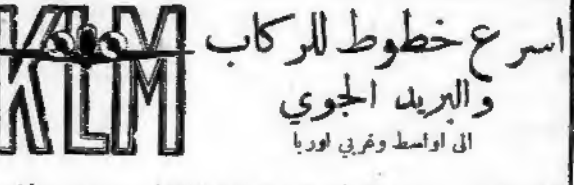 KLM
اسرع خطوط للركاب
والبريد الجوي
الى اواسط وغربي اوربا